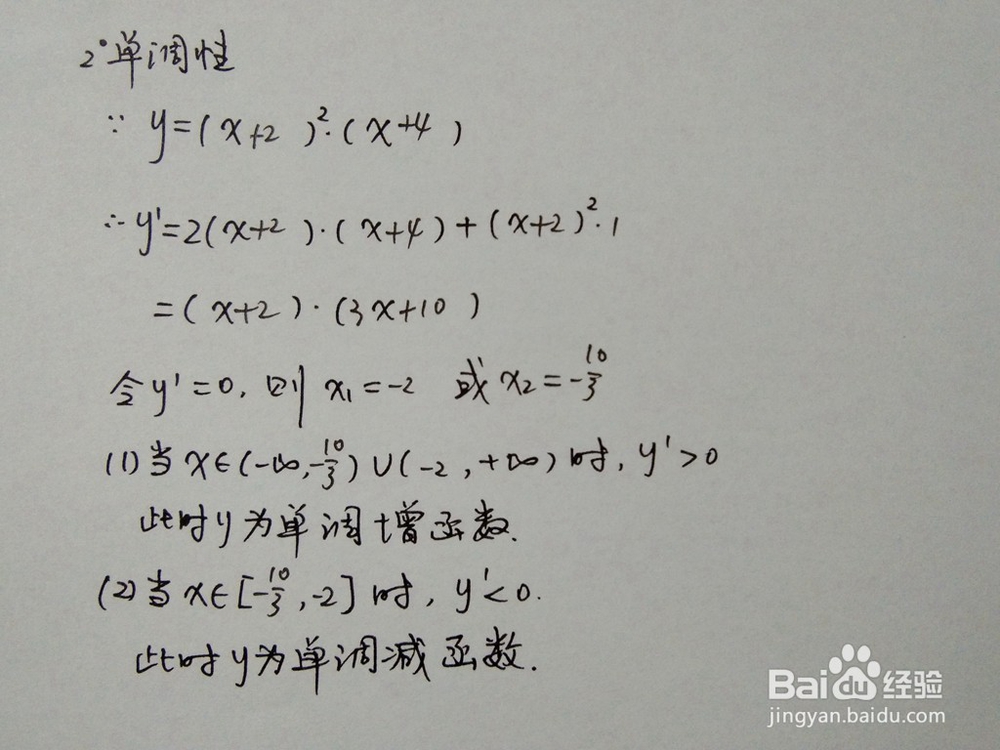 2°单调性
∵ y=(x+2)²·(x+4)
∴y'=2(x+2)·(x+4)+(x+2)²·1
=(x+2)·(3x+10)
令y'=0,则x₁=-2 或x₂=-10/3
(1)当x∈(-∞,-10/3)∪(-2,+∞)时,y'>0
此时y为单调增函数.
(2)当x∈[-10/3,-2]时,y'<0.
此时y为单调减函数.
Baidu经验
jingyan.baidu.com